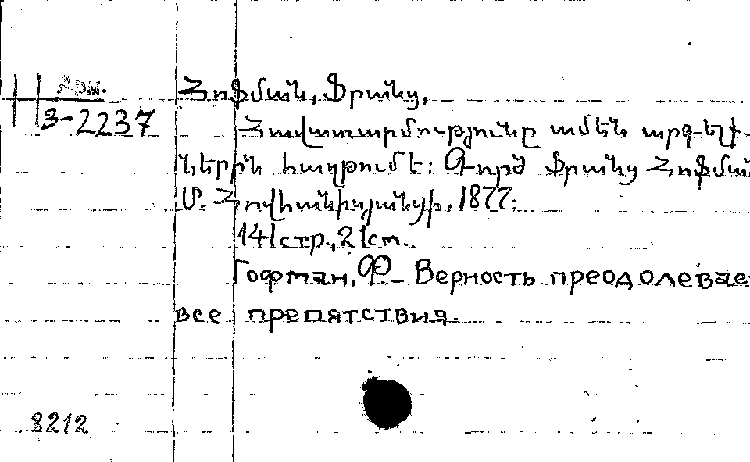 Арм.
3-2237
Հոֆման, Ֆրանց.
Հավատարմությունը ամեն արգելք-
ներին հաղթում է: Գործ Ֆրանց Հոֆմա
Մ. Հովհաննիսյանցի. 1877:
141стр., 21см.
Гофман, Ф. Верность преодолевае
все препятствия.
8212